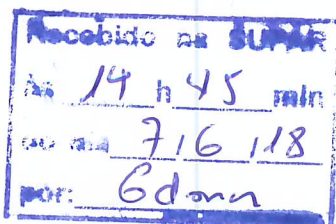 Recebido na SUPAR
às 14 h 45 min
no dia 7,6,18
por: